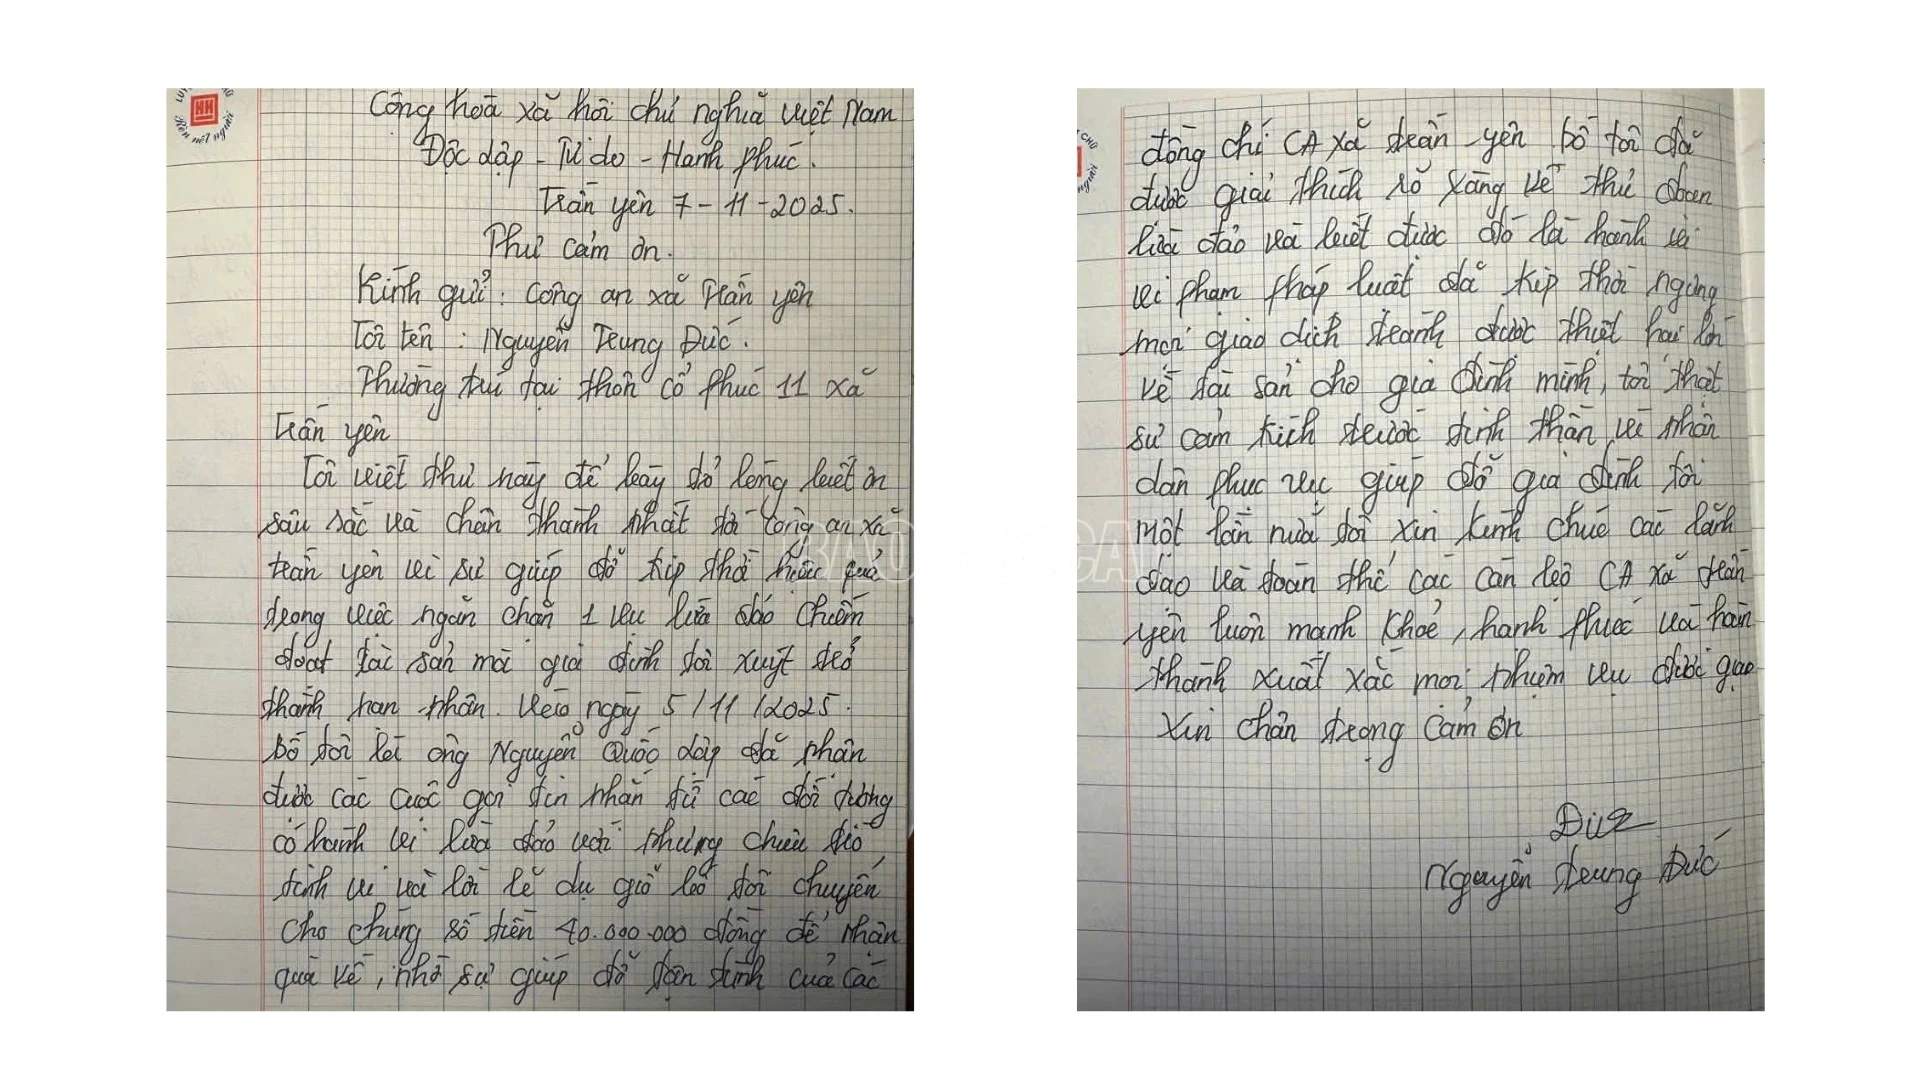 Cộng hoà xã hội chủ nghĩa việt Nam
Độc lập - Tự do - Hạnh phúc.
Trấn yên 7-11-2025.
Thư cảm ơn.
Kính gửi: Công an xã Trấn yên
Tôi tên: Nguyễn Trung Đức.
Thường trú tại thôn cổ phúc 11 xã
Trấn yên
Tôi viết thư này để bày tỏ lòng biết ơn
sâu sắc và chân thành nhất tới Công an xã
trấn yên vì sự giúp đỡ kịp thời hiệu quả
trong việc ngăn chặn 1 vụ lừa đảo chiếm
đoạt tài sản mà gia đình tôi xuýt trở
thành nạn nhân. Vào ngày 5/11/2025.
bố tôi là ông Nguyễn Quốc Lập đã nhận
được các cuộc gọi tin nhắn từ các đối tượng
có hành vi lừa đảo với những chiêu trò
tinh vi và lời lẽ dụ giỗ bố tôi chuyển
cho chúng số tiền 40.000.000 đồng để nhận
quà về, nhờ sự giúp đỡ tận tình của các
đồng chí CA xã trấn yên bố tôi đã
được giải thích rõ ràng về thủ đoạn
lừa đảo và biết được đó là hành vi
vi phạm pháp luật đã kịp thời ngừng
mọi giao dịch tránh được thiệt hại lớn
về tài sản cho gia đình mình, tôi thật
sự cảm kích trước tinh thần vì nhân
dân phục vụ giúp đỡ gia đình tôi
một lần nữa tôi xin kính chúc các lãnh
đạo và toàn thể các cán bộ CA xã trấn
yên luôn mạnh khoẻ, hạnh phúc và hoàn
thành xuất xắc mọi nhiệm vụ được giao
Xin chân trọng cảm ơn
Đức
Nguyễn trung Đức